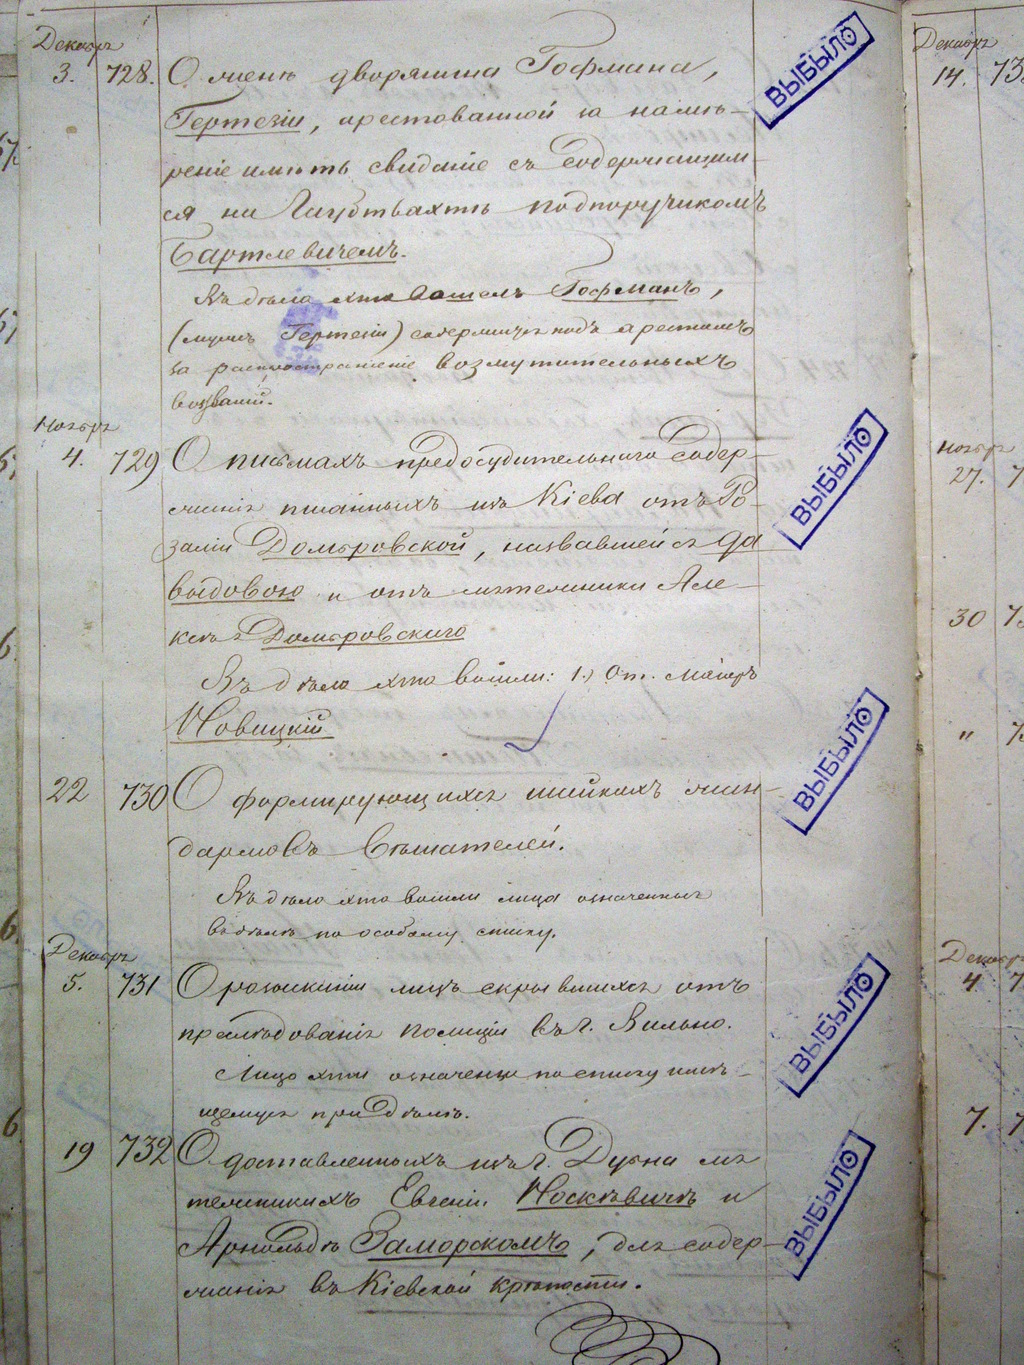 Декабрь
3. 728. О женѣ дворянина Гофмана,
ВЫБЫЛО
Гертезіи, арестованной за намѣ-
реніе имѣть свиданіе съ содержащим-
ся на Гауптвахтѣ подпоручикомъ
Бартлевичемъ.
Въ дѣло это вошелъ Гофманъ,
(мужъ Гертезіи) содержится подъ арестомъ
за распространеніе возмутительныхъ
воззваній.
Ноябрь
4. 729 О письмахъ предосудительнаго содер-
ВЫБЫЛО
жанія писанныхъ изъ Кіева отъ Ро-
заліи Домбровской, назвавшейся Да
выдовою и отъ мятежника Але-
ксѣя Домбровскаго
Въ дѣло это вошли: 1.) От. Маіоръ
Новицкій
22 730 О формирующихся шайкахъ жан-
ВЫБЫЛО
дармовъ вѣшателей.
Въ дѣло это вошли лица означенныя
въ дѣлѣ по особому списку.
Декабрь
5. 731 О розысканіи лицъ скрывшихся отъ
ВЫБЫЛО
преслѣдованія полиціи въ г. Вильно.
Лица эти означены по списку имѣ-
ющемуся при дѣлѣ.
19 732 О доставленныхъ изъ г. Дубна мя
ВЫБЫЛО
тежникахъ Евгеніи Носкѣвичѣ и
Арнольдѣ Заморскомъ, для содер-
жанія въ Кіевской крѣпости.
Декабрь
14. 73
Ноябрь
27. 7
30 73
" 73
Декабрь
4 7
7. 7